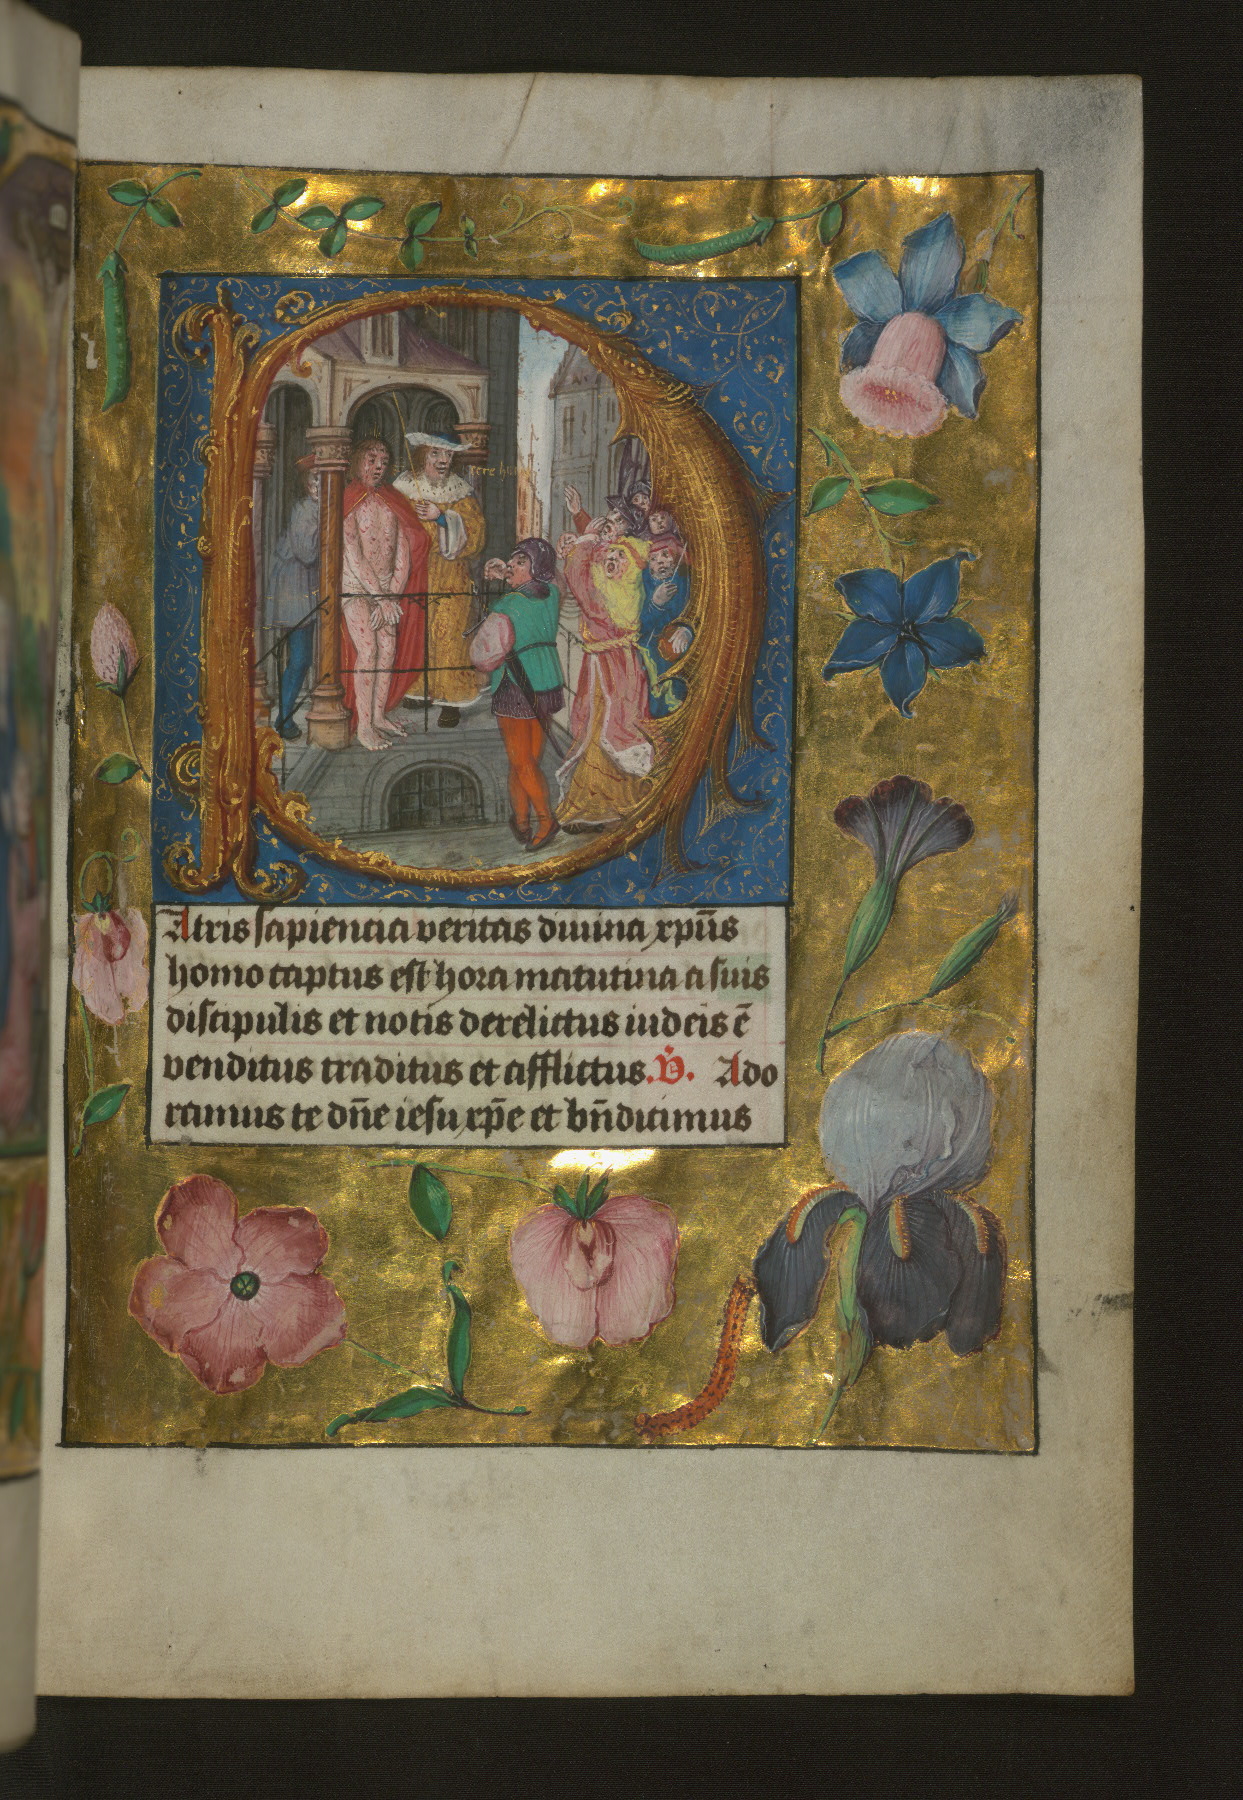 ecce homo
Patris sapiencia veritas diuina xpūs
homo captus est hora matutina a suis
discipulis et notis derelictus iudeis ē
venditus traditus et afflictus. V̇. Ado
ramus te dn̄e iesu xp̄e et bn̄dicimus